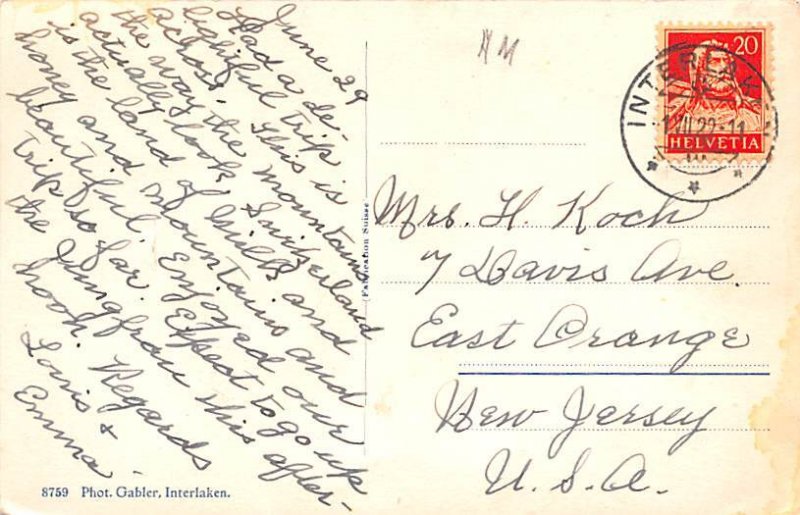 June 29
Had a de-
lightful trip
across. This is
the way the mountains
actually look. Switzerland
is the land of milk and
honey and mountains and
beautiful. Enjoyed our
trip so far. Expect to go up
the Jungfrau this after-
noon. Regards
Louis &
Emma.
8759 Phot. Gabler, Interlaken.
Fabrication Suisse
20
HELVETIA
INTERLAKEN
Mrs. H. Koch
7 Davis Ave.
East Orange
New Jersey
U. S. A.